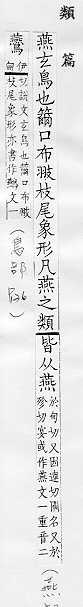 類篇
燕玄鳥也籋口布翄枝尾象形凡燕之類皆从燕
於甸切又因連切國名又於
殄切宴或作燕文一重音二
(燕
鷰
伊甸切說文玄鳥也籋口布翄
枝尾象形亦書作鷰文一
(鳥部 136)